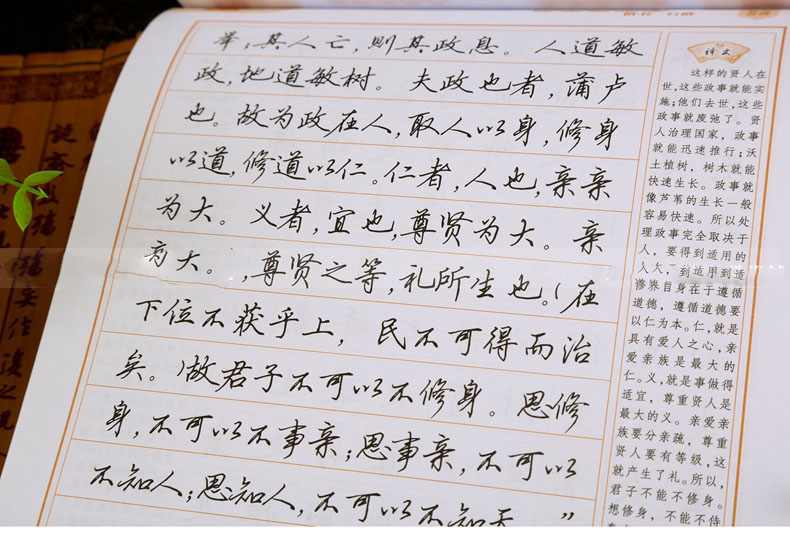 举;其人亡,则其政息。 人道敏
政,地道敏树。 夫政也者,蒲卢
也。故为政在人,取人以身,修身
以道,修道以仁。仁者,人也,亲亲
为大。义者,宜也,尊贤为大。亲
为大。,尊贤之等,礼所生也。(在
下位不获乎上, 民不可得而治
矣。)故君子不可以不修身。思修
身,不可以不事亲;思事亲,不可以
不知人;思知人,不可以不知天。”
译文
这样的贤人在
世,这些政事就能实
施;他们去世,这些
政事就废弛了。贤
人治理国家,政事
就能迅速推行;沃
土植树,树木就能
快速生长。政事就
像芦苇的生长一般
容易快速。所以处
理政事完全取决于
人,要得到适用的
到适用到适
自身在于遵循
道德,遵循道德要
以仁为本。仁,就是
具有爱人之心,亲
爱亲族是最大的
仁。义,就是事做得
适宜,尊重贤人是
最大的义。亲爱亲
族要分亲疏,尊重
贤人要有等级,这
就产生了礼。所以,
君子不能不修身。
想修身,不能不侍